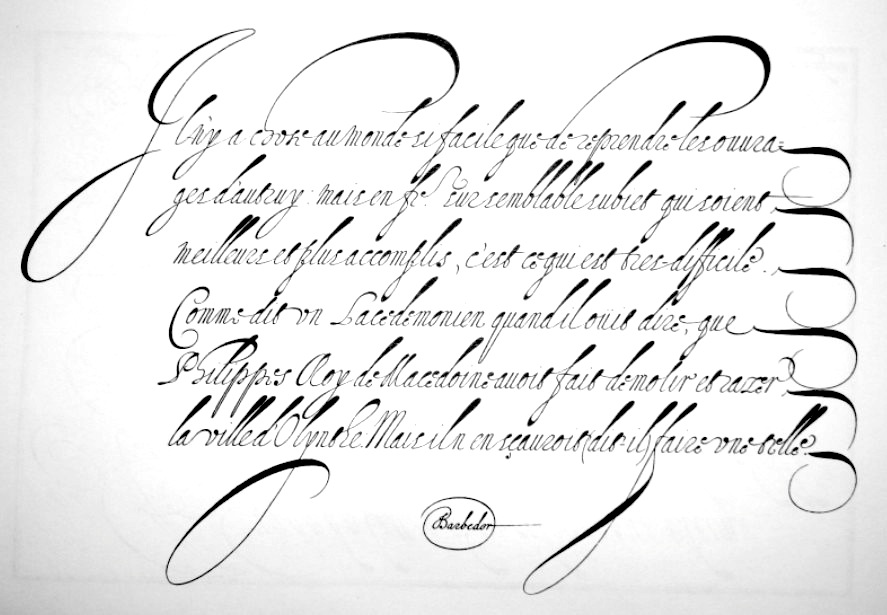 Il n'y a chose au monde si facile que de reprendre les ouura=
ges d'autruy: mais en fre. sur semblable subiet qui soient,
meilleurs et plus accomplis, c'est ce qui est tres difficile.
Comme dit vn Lacedemonien quand il ouit dire, que
Philippes Roy de Macedoine auoit fait demolir et razer,
la ville d'Olynthe. Mais il n en sçauroit (dit-il) faire vne telle.
Barbedor